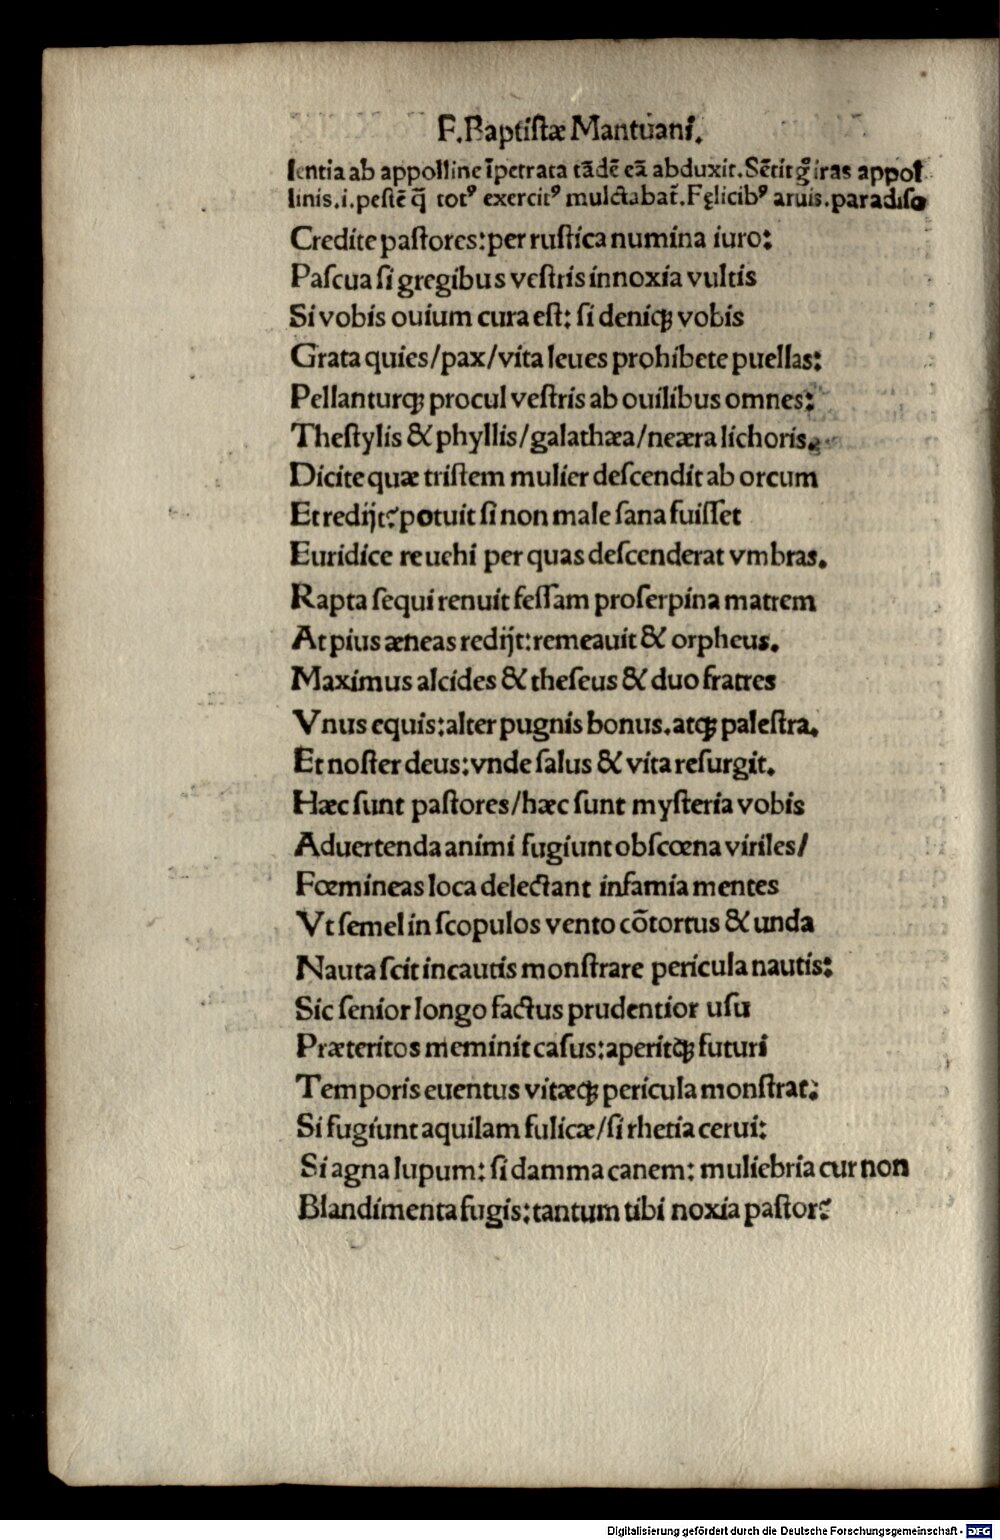 F.Baptistæ Mantuani.
lentia ab appolline īpetrata tādē eā abduxit. Sētit gͦ iras appol
linis.i.pestē q̄ totꝰ exercitꝰ mulctabat̄. Fęlicibꝰ aruis.paradiso
Credite pastores:per rustica numina iuro:
Pascua si gregibus vestris innoxia vultis
Si vobis ouium cura est: si deniqꝫ vobis
Grata quies/pax/vita leues prohibete puellas:
Pellanturqꝫ procul vestris ab ouilibus omnes:
Thestylis & phyllis/galathæa/neæra lichoris.
Dicite quæ tristem mulier descendit ab orcum
Et redijt?potuit si non male sana fuisset
Euridice reuehi per quas descenderat vmbras.
Rapta sequi renuit fessam proserpina matrem
At pius æneas redijt:remeauit & orpheus.
Maximus alcides & theseus & duo fratres
Vnus equis:alter pugnis bonus.atqꝫ palestra.
Et noster deus:vnde salus & vita resurgit.
Hæc sunt pastores/hæc sunt mysteria vobis
Aduertenda animi fugiunt obscœna viriles/
Fœmineas loca delectant infamia mentes
Vt semel in scopulos vento cōtortus & unda
Nauta scit incautis monstrare pericula nautis:
Sic senior longo factus prudentior usu
Præteritos meminit casus:aperitqꝫ futuri
Temporis euentus vitæqꝫ pericula monstrat:
Si fugiunt aquilam fulicæ/si rhetia cerui:
Si agna lupum: si damma canem: muliebria cur non
Blandimenta fugis:tantum tibi noxia pastor?
Digitalisierung gefördert durch die Deutsche Forschungsgemeinschaft - DFG